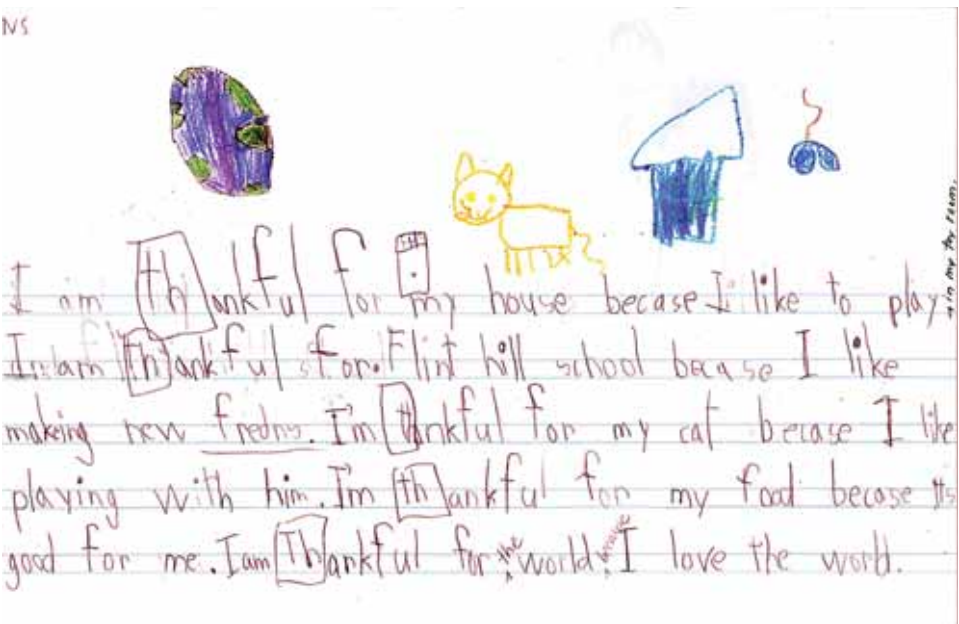 NS
I am thankful for my house becase I like to play
→ in my toy room.
I am thankful for Flint hill school becase I like
makeing new fredns. I'm thankful for my cat becase I like
playing with him. I'm thankful for my food becase its
good for me. I am Thankful for the world becaise I love the world.